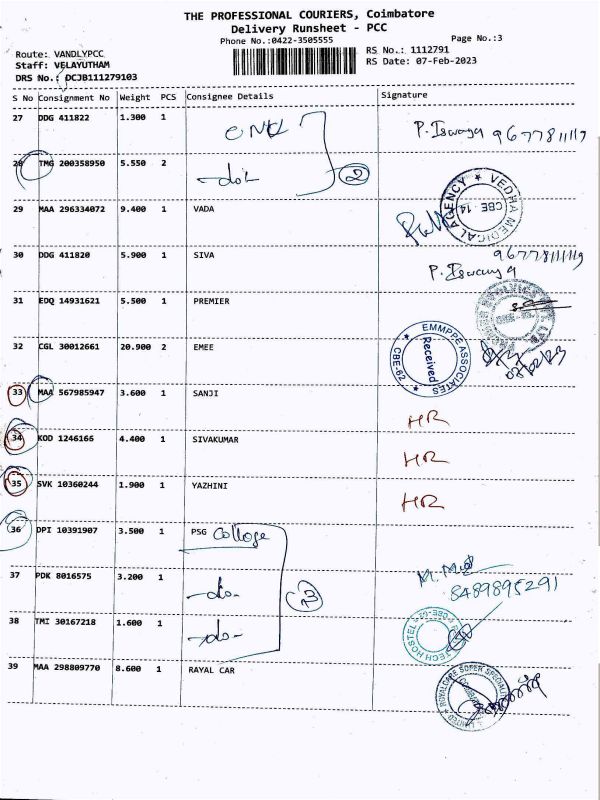 THE PROFESSIONAL COURIERS, Coimbatore
Delivery Runsheet - PCC
Phone No.:0422-3505555
Page No.:3
Route: VANDLYPCC
RS No.: 1112791
Staff: VELAYUTHAM
RS Date: 07-Feb-2023
DRS No.: DCJB111279103
S No Consignment No Weight PCS Consignee Details Signature
27 DDG 411822 1.300 1 P. Iswarya 9677811117
28 TMG 200358950 5.550 2 -do- 2
29 MAA 296334072 9.400 1 VADA
VEDHA MEDICAL AGENCY ★ CBE - 14
30 DDG 411820 5.900 1 SIVA P. Iswarya
31 EDQ 14931621 5.500 1 PREMIER
32 CGL 30012661 20.900 2 EMEE
EMMPPE ASSOCIATES ★ CBE-62 ★ Received
33 MAA 567985947 3.600 1 SANJI HR
34 KOD 1246166 4.400 1 SIVAKUMAR HR
35 SVK 10360244 1.900 1 YAZHINI HR
36 DPI 10391907 3.500 1 PSG College
37 PDK 8016575 3.200 1 -do- 3 8489895291
38 TMI 30167218 1.600 1 -do-
TECH HOSTEL
39 MAA 298809770 8.600 1 RAYAL CAR
ROYALCARE SUPER SPECIALITY